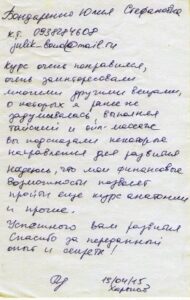 Бондаренко Юлия Стефановна
к.т. 0938784608
julik-bond@mail.ru
Курс очень понравился,
очень заинтересовали
многими другими вещами,
о которых я ранее не
задумывалась, включая
тайский и
Вы подсказали некоторые
направления для развития
Надеюсь, что мои финансовые
возможности позволят
пройти еще курс анатомии
и прочие.
Успешного вам развития
Спасибо за переданный
опыт и секреты!
19/04/15
Харьков